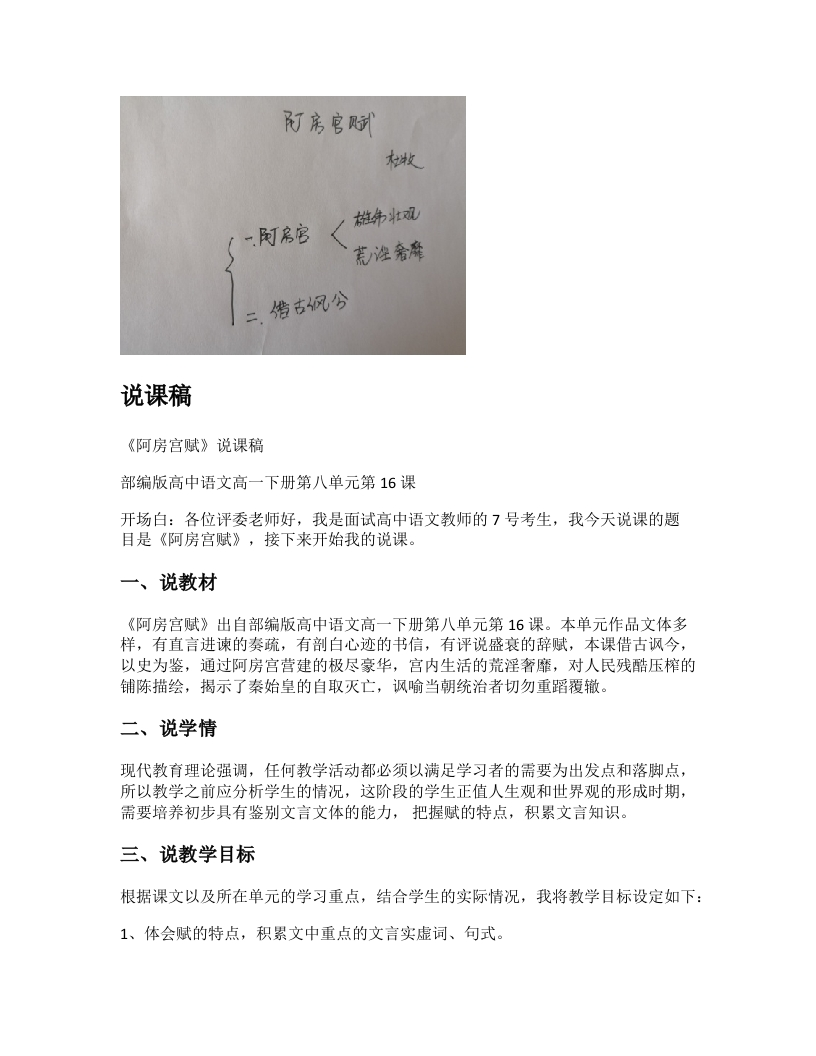 阿房宫赋
杜牧
一.阿房宫
雄伟壮观
荒淫奢靡
二.借古讽今
说课稿
《阿房宫赋》说课稿
部编版高中语文高一下册第八单元第 16 课
开场白：各位评委老师好，我是面试高中语文教师的 7 号考生，我今天说课的题
目是《阿房宫赋》，接下来开始我的说课。
一、说教材
《阿房宫赋》出自部编版高中语文高一下册第八单元第 16 课。本单元作品文体多
样，有直言进谏的奏疏，有剖白心迹的书信，有评说盛衰的辞赋，本课借古讽今，
以史为鉴，通过阿房宫营建的极尽豪华，宫内生活的荒淫奢靡，对人民残酷压榨的
铺陈描绘，揭示了秦始皇的自取灭亡，讽喻当朝统治者切勿重蹈覆辙。
二、说学情
现代教育理论强调，任何教学活动都必须以满足学习者的需要为出发点和落脚点，
所以教学之前应分析学生的情况，这阶段的学生正值人生观和世界观的形成时期，
需要培养初步具有鉴别文言文体的能力， 把握赋的特点，积累文言知识。
三、说教学目标
根据课文以及所在单元的学习重点，结合学生的实际情况，我将教学目标设定如下：
1、体会赋的特点，积累文中重点的文言实虚词、句式。